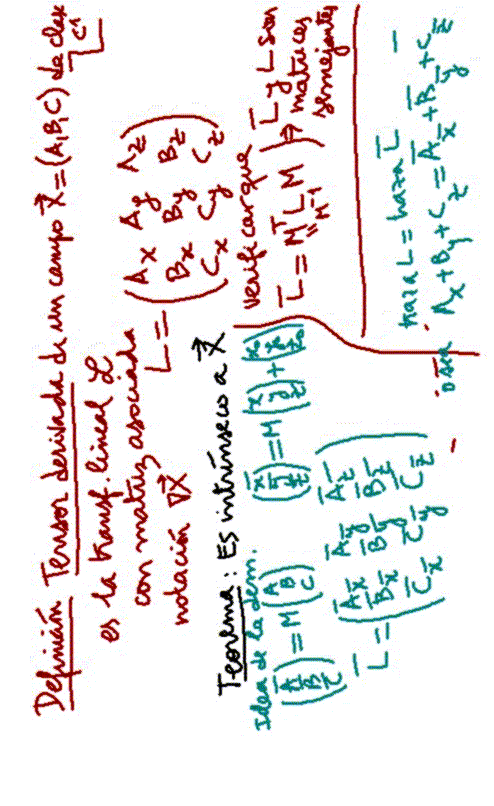 Definición Tensor derivada de un campo X⃗ = (A, B, C) de clase C¹
es la transf. lineal L
con matriz asociada L = (A_x A_y A_z
B_x B_y B_z
C_x C_y C_z)
notación ∇X⃗
Teorema: Es intrínseco a X⃗
Idea de la dem.
(A̅ B̅ C̅) = M (A B C) (x̅ y̅ z̅) = M (x y z) + (x₀ y₀ z₀)
L̅ = (A̅_x̅ A̅_y̅ A̅_z̅
B̅_x̅ B̅_y̅ B̅_z̅
C̅_x̅ C̅_y̅ C̅_z̅)
Verificar que
L̅ = M L M
M⁻¹
⇒ L̅ y L son
matrices
semejantes
traza L = traza L̅
o sea A_x + B_y + C_z = A̅_x̅ + B̅_y̅ + C̅_z̅